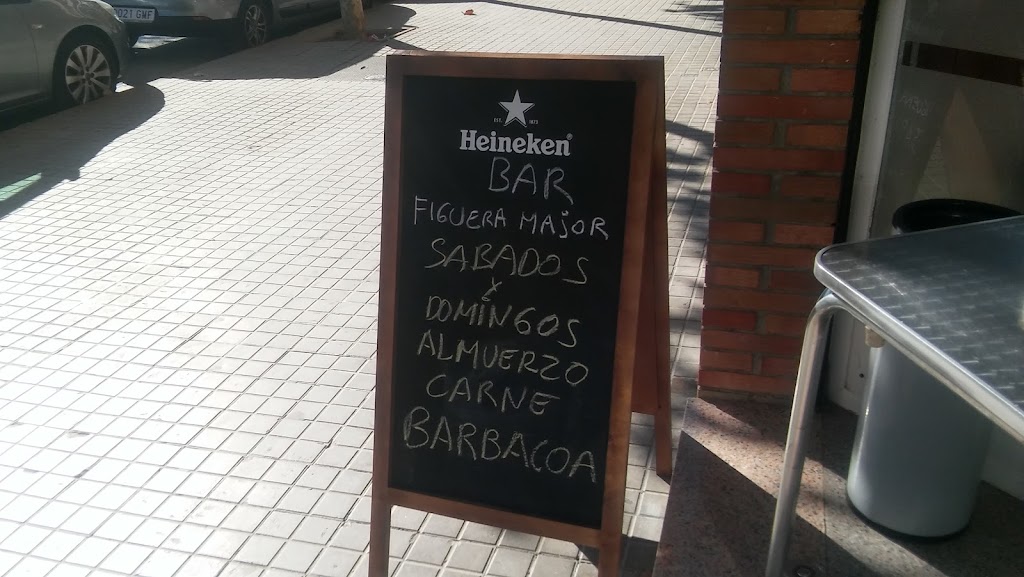 021 GWF
EST. 1873
Heineken®
BAR
FIGUERA MAJOR
SABADOS
Y
DOMINGOS
ALMUERZO
CARNE
BARBACOA